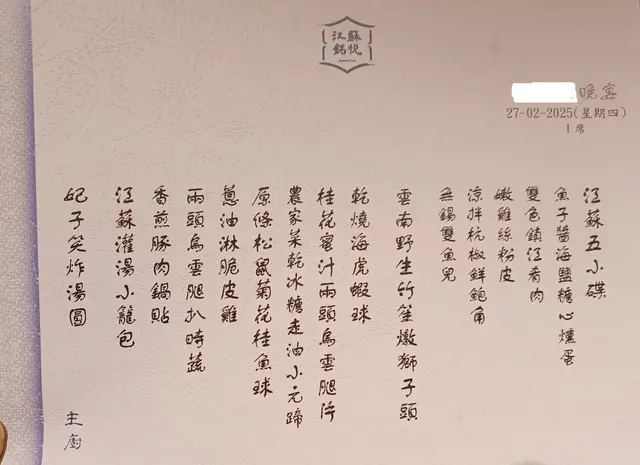 江蘇
銘悅
晚宴
27-02-2025(星期四)
1席
江蘇五小碟
魚子醬海鹽糖心燻蛋
雙色鎮江肴肉
嫩雞絲粉皮
涼拌杭椒鮮鮑角
無錫雙魚兒
雲南野生竹笙燉獅子頭
乾燒海虎蝦球
桂花蜜汁兩頭烏雲腿片
農家菜乾冰糖走油小元蹄
原條松鼠菊花桂魚球
蔥油淋脆皮雞
兩頭烏雲腿扒時蔬
香煎豚肉鍋貼
江蘇灌湯小籠包
妃子笑炸湯圓
主廚